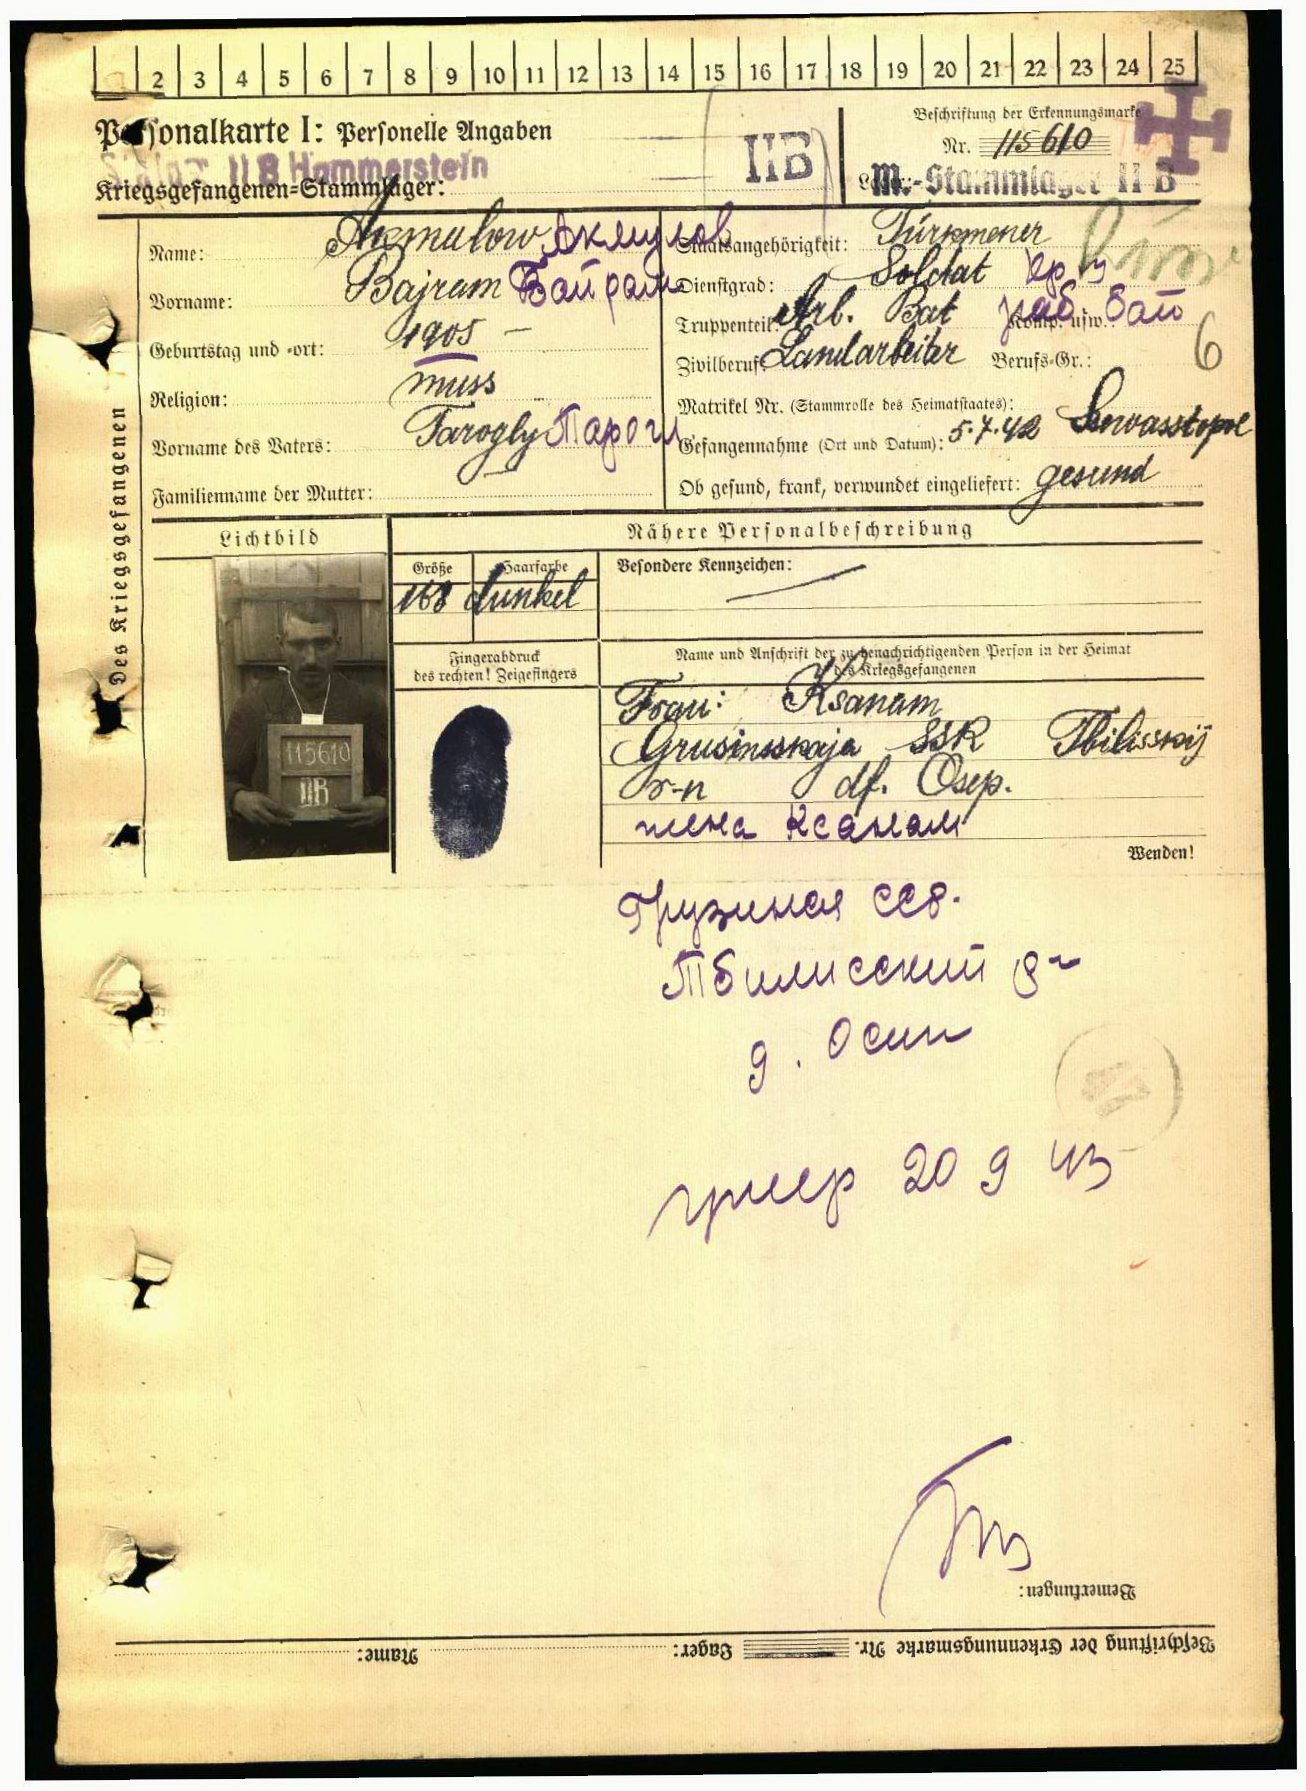 2 3 4 5 6 7 8 9 10 11 12 13 14 15 16 17 18 19 20 21 22 23 24 25
Personalkarte I: Personelle Angaben
Stalag II B Hammerstein
Kriegsgefangenen=Stammlager:
II B
Beschriftung der Erkennungsmarke
Nr. 115610
M.-Stammlager II B
Des Kriegsgefangenen
Name: Akmulow Акмулов
Vorname: Bajram Байрам
Geburtstag und -ort: 1905 –
Religion: muss
Vorname des Vaters: Tarogly Тарогл
Familienname der Mutter:
Staatsangehörigkeit: Türkmener
Dienstgrad: Soldat кр-ц
Truppenteil: Arb. Bat Komp. usw.: раб. бат
Zivilberuf: Landarbeiter Berufs-Gr.: 6
Matrikel Nr. (Stammrolle des Heimatstaates):
Gefangennahme (Ort und Datum): 5.7.42 Sewasstopol
Ob gesund, krank, verwundet eingeliefert: gesund
Lichtbild
115610
IIB
Nähere Personalbeschreibung
Größe Haarfarbe Besondere Kennzeichen: —
168 dunkel
Fingerabdruck
des rechten! Zeigefingers
Name und Anschrift der zu benachrichtigenden Person in der Heimat
des Kriegsgefangenen
Frau: Ksanam
Grusinsskaja SSR Tbilisskij
r-n df. Osep.
жена Ксанам
Wenden!
Грузиная ССР.
Тбилисский р-н
д. Осип
умер 20 9 43
Bemerkungen:
Beschriftung der Erkennungsmarke Nr. Lager: Name: